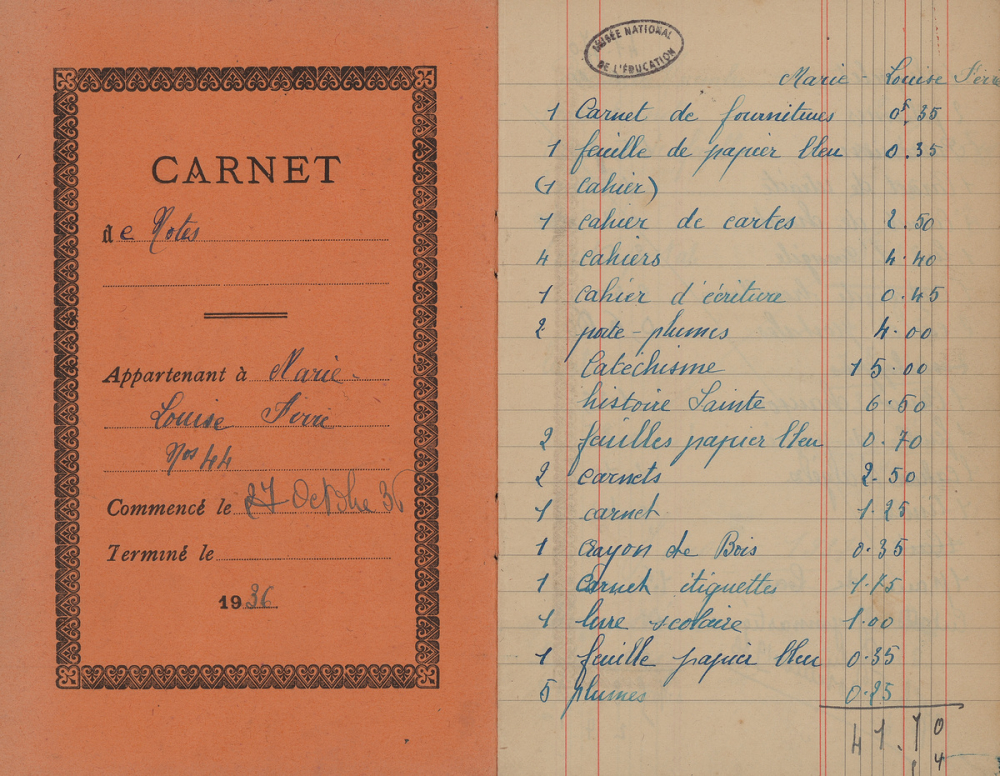 CARNET
de Notes
Appartenant à Marie-
Louise Ferré
Nos 44
Commencé le 27 Octobre 36
Terminé le
1936
MUSÉE NATIONAL
DE L'ÉDUCATION
Marie - Louise Ferré
1 Carnet de fournitures 0f.35
1 feuille de papier bleu 0.35
(1 cahier)
1 cahier de cartes 2.50
4 cahiers 4.40
1 cahier d'écriture 0.45
2 porte-plumes 4.00
Catéchisme 15.00
histoire Sainte 6.50
2 feuilles papier bleu 0.70
2 carnets 2.50
1 carnet 1.25
1 crayon de Bois 0.35
1 Carnet étiquettes 1.75
1 livre scolaire 1.00
1 feuille papier bleu 0.35
5 plumes 0.25
41.70